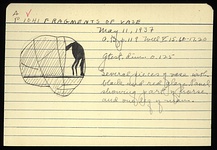 A
P 1041 FRAGMENTS OF VASE
May 11, 1937
Gtest. dim. 0.125
Several pieces of vase with
black and red glaze. Panel
showing part of horse,
and one leg of man.